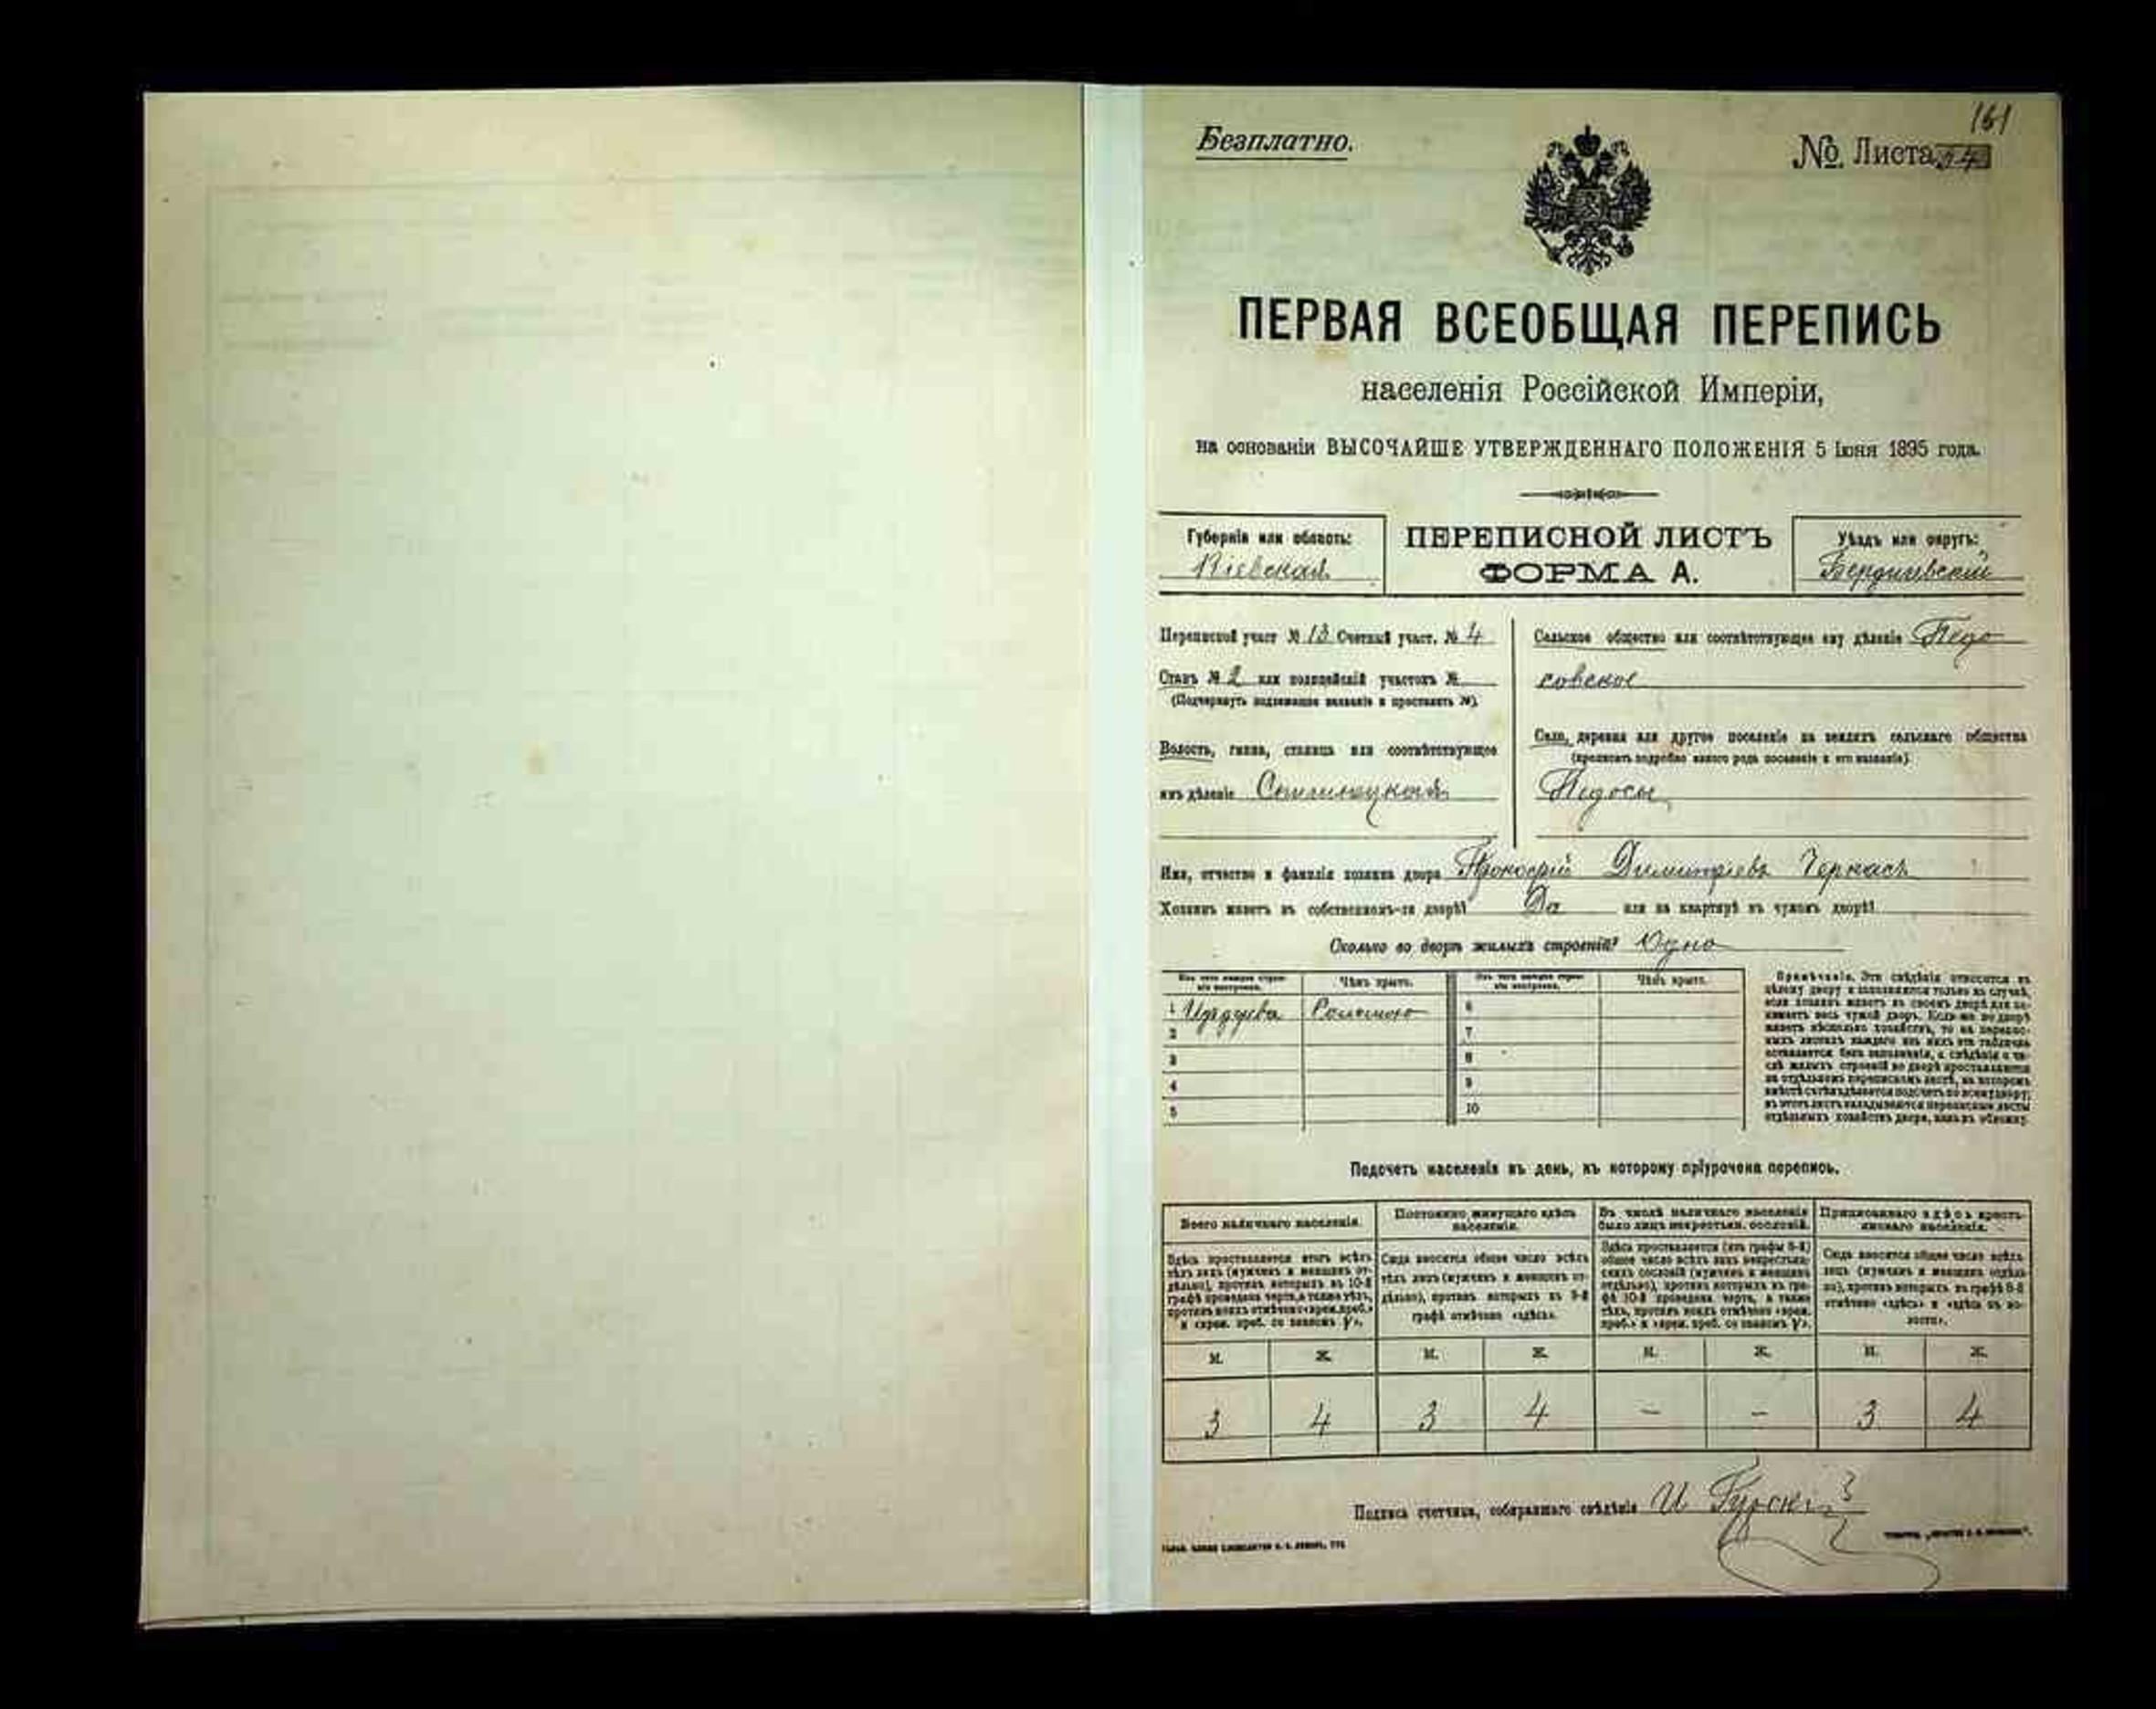 161
Безплатно.
№ Листа 54
ПЕРВАЯ ВСЕОБЩАЯ ПЕРЕПИСЬ
населенія Россійской Имперіи,
на основаніи ВЫСОЧАЙШЕ УТВЕРЖДЕННАГО ПОЛОЖЕНІЯ 5 Іюня 1895 года.
Губернія или область:
Кіевская
ПЕРЕПИСНОЙ ЛИСТЪ
ФОРМА А.
Уѣздъ или округъ:
Бердичевскій
Переписной участ № 13 Счетный участ. № 4
Станъ № 2 или полицейскій участокъ №
(Подчеркнуть подлежащее названіе и проставить №).
Волость, гмина, станица или соотвѣтствующее
имъ дѣленіе
Сельское общество или соотвѣтствующее ему дѣленіе Педо
совское
Село, деревня или другое поселеніе на земляхъ сельскаго общества
(прописать подробно какого рода поселеніе и его названіе)
Педосы
Имя, отчество и фамилія хозяина двора Прокофій Димитріевъ Черкасъ
Хозяинъ живетъ въ собственномъ-ли дворѣ? Да или на квартирѣ въ чужомъ дворѣ?
Сколько во дворѣ жилыхъ строеній? Одно
Изъ чего каждое строе-
ніе построено.
Чѣмъ крыто.
Изъ чего каждое строе-
ніе построено.
Чѣмъ крыто.
1 Соломою 6
2 7
3 8
4 9
5 10
Примѣчаніе. Эти свѣдѣнія относятся къ
цѣлому двору и заполняются только въ случаѣ,
если хозяинъ живетъ въ своемъ дворѣ или за-
нимаетъ весь чужой дворъ. Если-же во дворѣ
живетъ нѣсколько хозяйствъ, то на перепис-
ныхъ листахъ каждаго изъ нихъ эта табличка
оставляется безъ заполненія, а свѣдѣнія о чи-
слѣ жилыхъ строеній во дворѣ проставляются
на отдѣльномъ переписномъ листѣ, на которомъ
вмѣстѣ съ тѣмъ дѣлается подсчетъ по всему двору;
въ этотъ листъ вкладываются переписные листы
отдѣльныхъ хозяйствъ двора, какъ въ обложку.
Подсчетъ населенія въ день, къ которому пріурочена перепись.
Всего наличнаго населенія.
Здѣсь проставляется итогъ всѣхъ
тѣхъ лицъ (мужчинъ и женщинъ от-
дѣльно), противъ которыхъ въ 10-й
графѣ проведена черта, а также тѣхъ,
противъ коихъ отмѣчено «врем. преб.»
и «врем. преб. со знакомъ V».
Постоянно живущаго здѣсь
населенія.
Сюда вносится общее число всѣхъ
тѣхъ лицъ (мужчинъ и женщинъ от-
дѣльно), противъ которыхъ въ 9-й
графѣ отмѣчено «здѣсь».
Въ числѣ наличнаго населенія
было лицъ некрестьян. сословій.
Здѣсь проставляется (изъ графы 8-й)
общее число всѣхъ лицъ некрестьян-
скихъ сословій (мужчинъ и женщинъ
отдѣльно), противъ которыхъ въ гра-
фѣ 10-й проведена черта, а также
тѣхъ, противъ коихъ отмѣчено «врем.
преб.» и «врем. преб. со знакомъ V».
Приписаннаго здѣсь кресть-
янскаго населенія.
Сюда вносится общее число всѣхъ
лицъ (мужчинъ и женщинъ отдѣль-
но), противъ которыхъ въ графѣ 8-й
отмѣчено «здѣсь» и «здѣсь въ во-
лости».
М. Ж. М. Ж. М. Ж. М. Ж.
3 4 3 4 – – 3 4
Подпись счетчика, собиравшаго свѣдѣнія И Гурскій